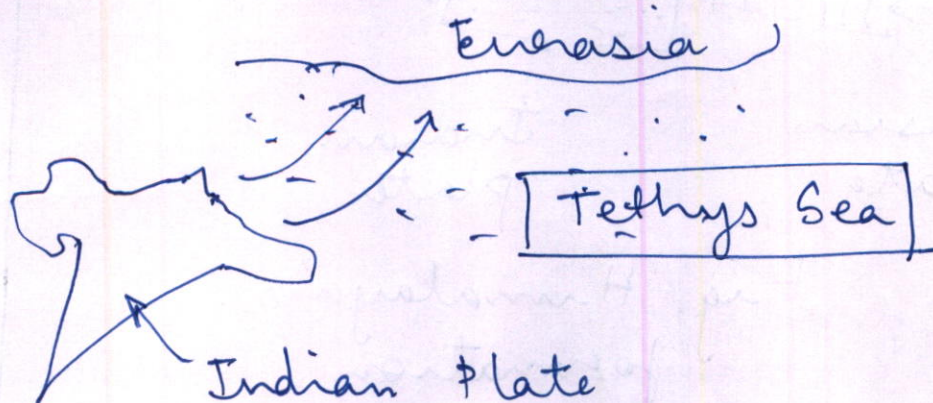 Eurasia
Tethys Sea
Indian Plate